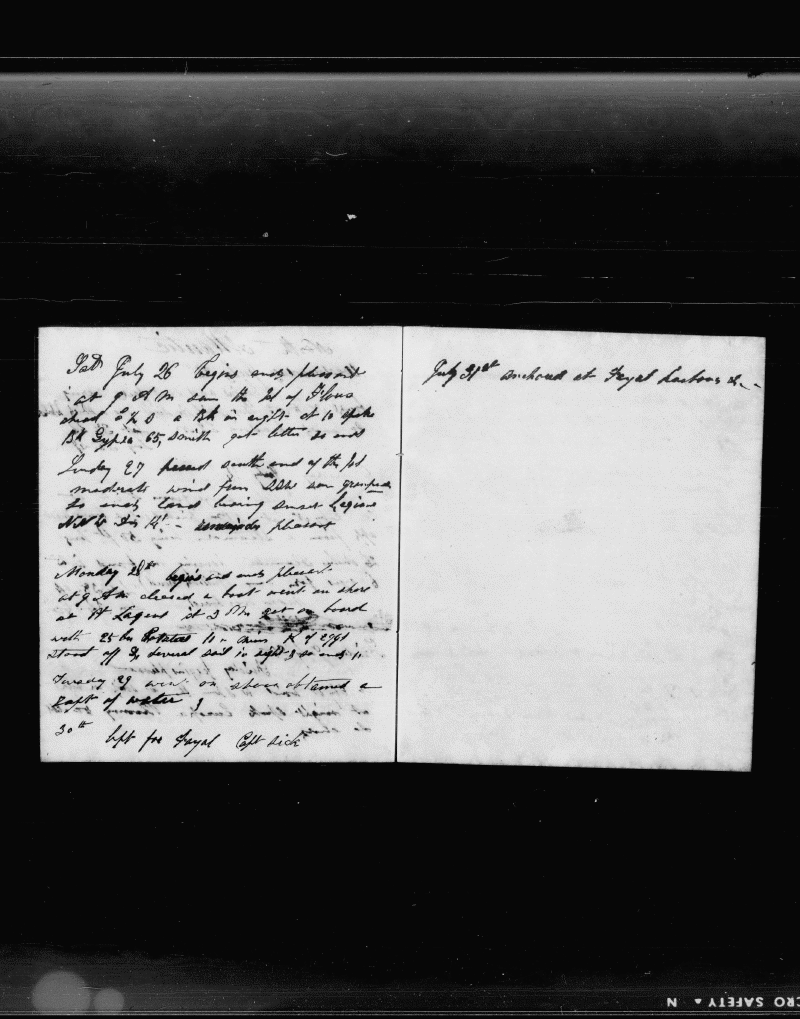 Sat July 26 begins and pleasant
at 9 A M saw the Isl of Flous
a Bk in sight at 10 spoke
Bk Gypsie 65, Smith got letter so ends
Sunday 27 passed south end of the Isl
moderate wind from SSW saw
so ends land bearing sunset
N W W Dis 14' - pleasant
Monday 28th begins and ends pleasant
at 9 AM a boat went on shore
at at 3 PM got on board
with 25 bu Potatoes 11 K of eggs
stood off &c several sail in sight so ends
Tuesday 29 went on shore obtained a
raft of water
30th left for Fayal Capt sick
July 31st anchored at Fayal harbour &c